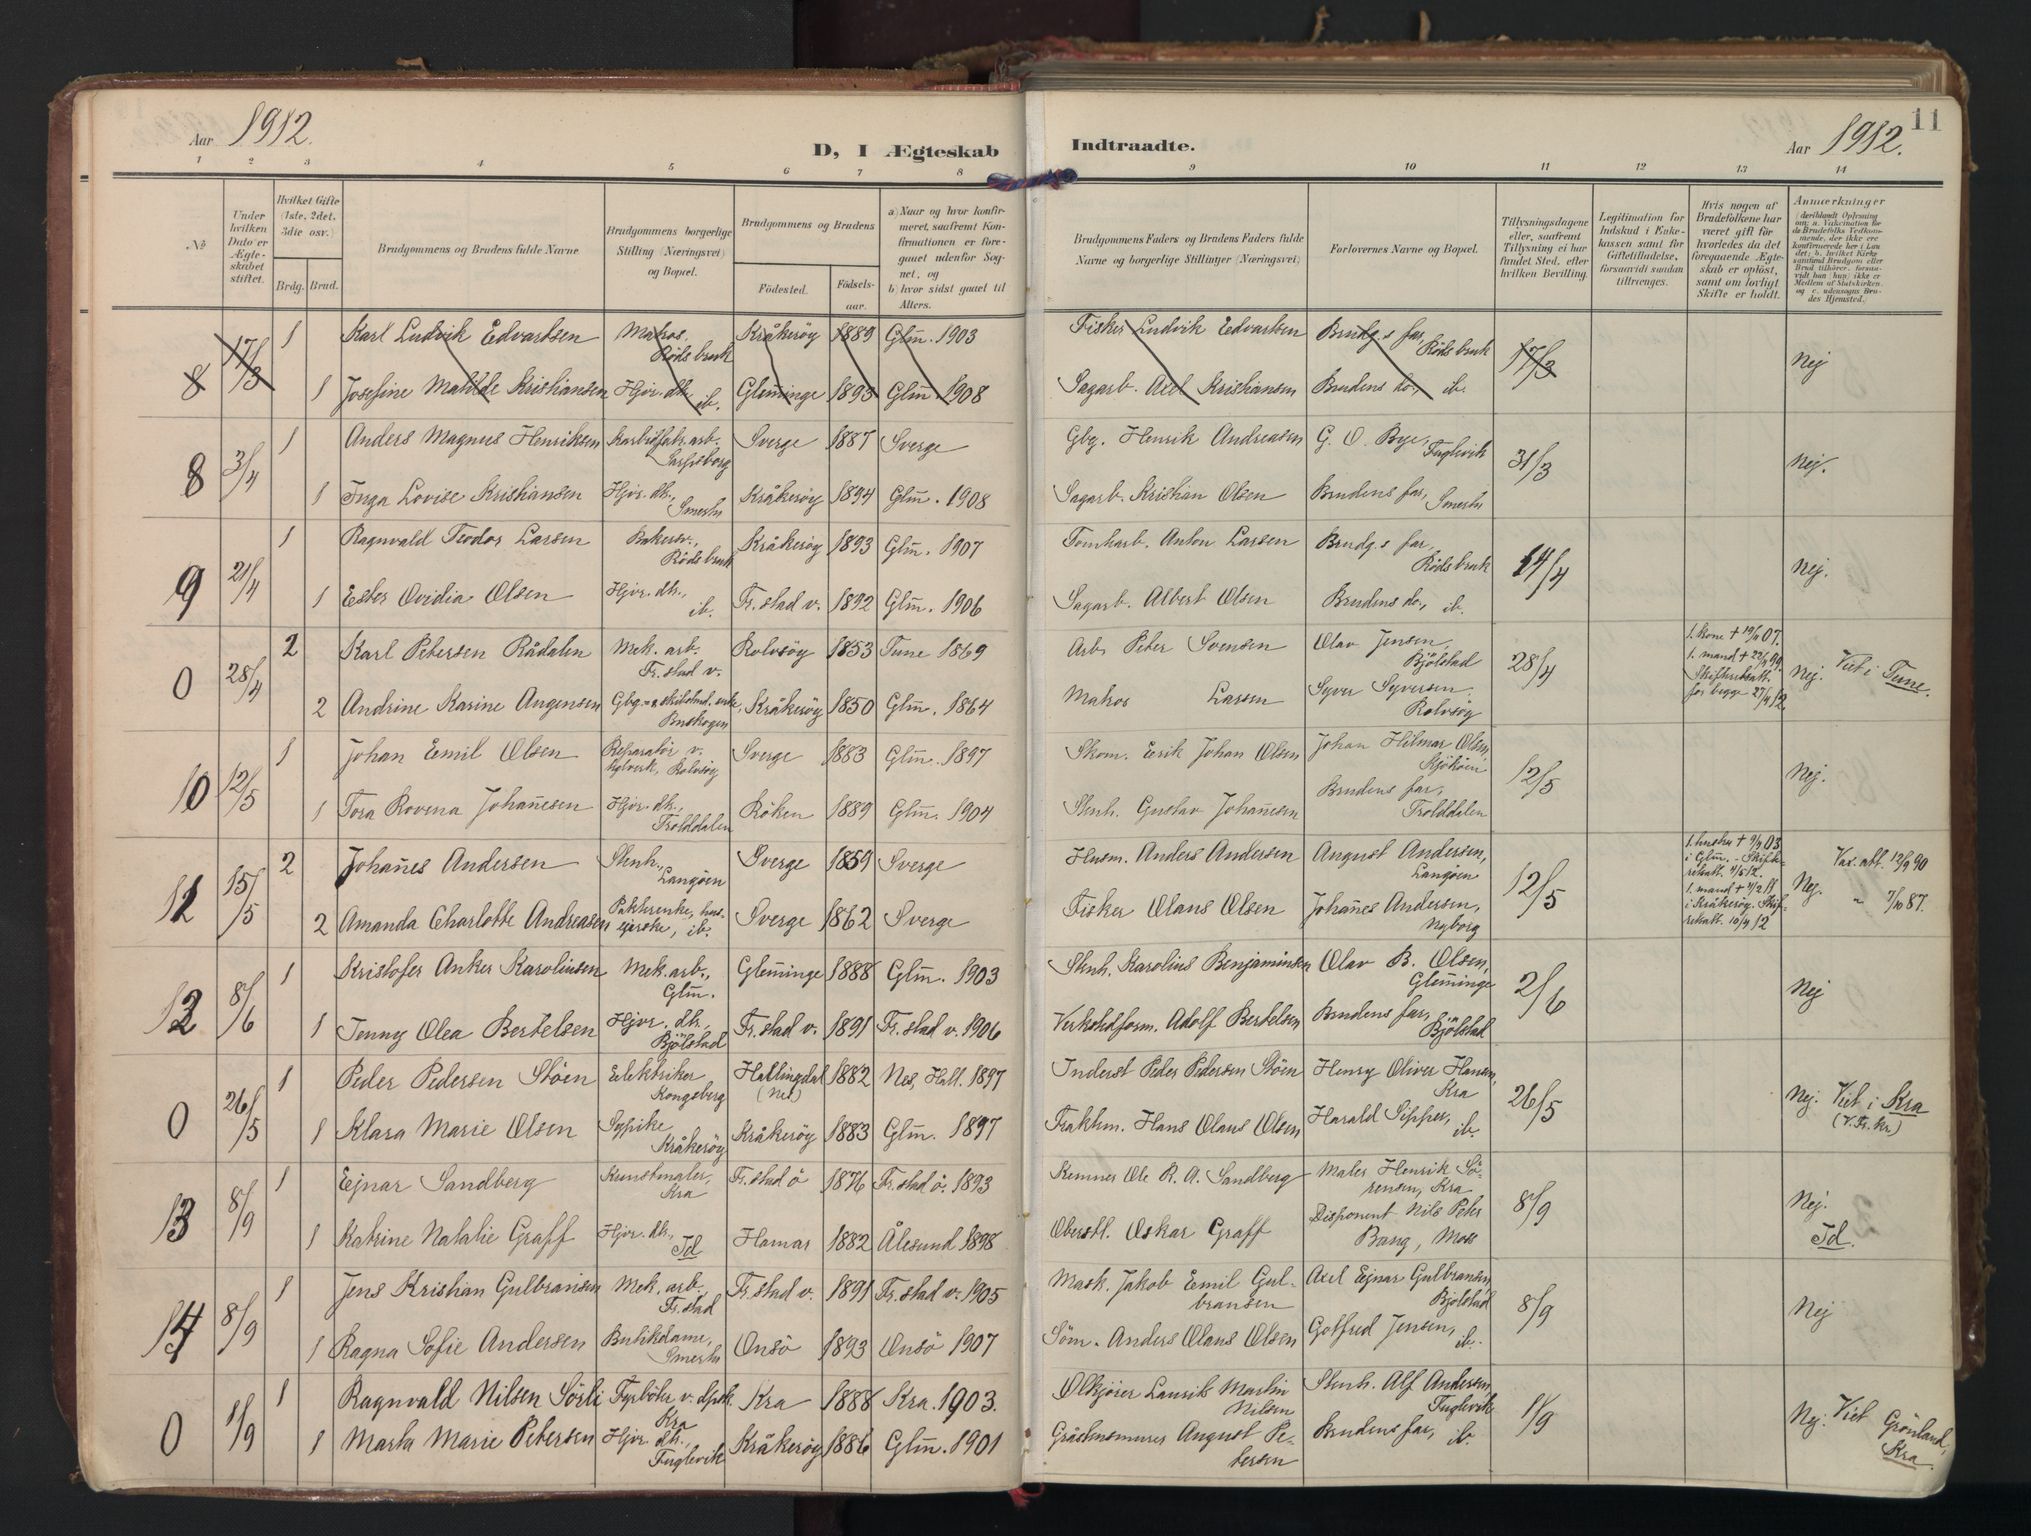 11
Aar 1912.
D, I Ægteskab
Indtraadte.
Aar 1912.
1 2 3 4 5 6 7 8 9 10 11 12 13 14
No
Under hvilken Dato er Ægteskabet stiftet.
Hvilket Gifte (1ste, 2det, 3die osv.)
Brdg. Brud.
Brudgommens og Brudens fulde Navne
Brudgommens borgerlige Stilling (Næringsvei) og Bopæl.
Brudgommens og Brudens
Födested.
Födselsaar.
a) Naar og hvor konfirmeret, saafremt Konfirmationen er foregaaet udenfor Sognet, og
b) hvor sidst gaaet til Alters.
Brudgommens Faders og Brudens Faders fulde Navne og borgerlige Stillinger (Næringsvei)
Forlovernes Navne og Bopæl.
Tillysningsdagene eller, saafremt Tillysning ei har fundet Sted, efter hvilken Bevilling.
Legitimation for Indskud i Enkekassen samt for Giftetilladelse, forsaavidt saadan tiltrænges.
Hvis nogen af Brudefolkene har været gift för hvorledes da det foregaaende Ægteskab er oplöst, samt om lovligt Skifte er holdt.
Anmærkninger
8 17/3 1 Karl Ludvik Edvartsen Matros, Rödsbruk Kråkeröy 1889 Glm. 1903 Fisker Ludvik Edvartsen Brudg.s far, Rödsbruk 17/3 Nej
1 Josefine Matilde Kristiansen Hjv. dtr., ib. Gleminge 1893 Glm. 1908 Sagarb. Axel Kristiansen Brudens do., ib.
8 3/4 1 Anders Magnus Henriksen Karbidfabr.arb. Sarpsborg Sverge 1887 Sverge Gbg. Henrik Andreasen G. O. Bye, Fuglevik 31/3 Nej.
1 Inga Lovise Kristiansen Hjv. dtr., Smertu Kråkeröy 1894 Glm. 1908 Sagarb. Kristian Olsen Brudens far, Smertu
9 21/4 1 Ragnvald Teodor Larsen Bakersv., Rödsbruk Kråkeröy 1893 Glm. 1907 Tomtarb. Anton Larsen Brudg.s far, Rödsbruk 14/4 Nej.
1 Ester Ovidia Olsen Hjv. dtr., ib. Fr.stad v. 1892 Glm. 1906 Sagarb. Albert Olsen Brudens do., ib.
0 28/4 2 Karl Petersen Rådalen Mek. arb. Fr.stad v. Rolvsöy 1853 Tune 1869 Arb. Peter Svensen Olav Jensen, Bjölstad 28/4 1. kone + 19/11 07. 1. mand + 22/4 99. Skifteretsatt. for begge 27/4 12. Nej. Viet i Tune.
2 Andrine Karine Angensen Buskogen Kråkeröy 1850 Glm. 1864 Matros Larsen Syver Syversen, Rolvsöy
10 12/5 1 Johan Emil Olsen Reparatör v. Rolvsöy Sverge 1883 Glm. 1897 Skom. Erik Johan Olsen Johan Hilmar Olsen, Kjököen 12/5 Nej.
1 Tora Rovena Johannesen Hjv. dtr., Trolddalen Röken 1889 Glm. 1904 Stenh. Gustav Johannesen Brudens far, Trolddalen
11 15/5 2 Johannes Andersen Stenh., Langöen Sverge 1859 Sverge Husm. Anders Andersen August Andersen, Langöen 12/5 1. hustru + 9/9 03 i Glm. - Skifteretsatt. 4/5 12. 1. mand + 4/2 11 i Kråkeröy. Skifteretsatt. 10/4 12 Nej. Vax. att. 12/9 90
2 Amanda Charlotte Andreasen ib. Sverge 1862 Sverge Fisker Olaus Olsen Johannes Andersen, Nyborg " 7/10 87.
12 8/6 1 Kristofer Anker Karoliusen Mek. arb., Glm. Gleminge 1888 Glm. 1903 Stenh. Karolius Benjaminsen Olav B. Olsen, Gleminge 2/6 Nej
1 Jenny Olea Bertelsen Hjv. dtr., Bjölstad Fr.stad v. 1891 Fr.stad v. 1906 Verkstedform. Adolf Bertelsen Brudens far, Bjölstad
0 26/5 1 Peder Pedersen Stöen Elektriker Kongsberg Hallingdal (Nes) 1882 Nes, Hall. 1897 Inderst Peder Pedersen Stöen Henry Oliver Hansen, Kra 26/5 Nej. Viet i Kra (V. Fr. kr.)
1 Klara Marie Olsen Sypike Kråkeröy Kråkeröy 1883 Glm. 1897 Trakthm. Hans Olaus Olsen Harald Sipper, ib.
13 8/9 1 Ejnar Sandberg Kunstmaler, Kra Fr.stad ö 1876 Fr.stad ö. 1893 Kemner Ole R. A. Sandberg Maler Henrik Sörensen, Kra 8/9 Nej.
1 Katrine Natalie Graff Hjv. dtr., Id Hamar 1882 Ålesund 1898 Oberstl. Oskar Graff Disponent Nils Peter Bang, Moss Id.
14 8/9 1 Jens Kristian Gulbransen Mek. arb., Fr.stad Fr.stad v. 1891 Fr.stad v. 1905 Mask. Jakob Emil Gulbransen Axel Ejnar Gulbransen, Bjölstad 8/9 Nej
1 Ragna Sofie Andersen Butikdame, Smertu Onsö 1893 Onsö 1907 Söm. Anders Olaus Olsen Gotfred Jensen, ib.
0 1/9 1 Ragnvald Nilsen Sörli Fyrböter v. dpsk. Kra Kra 1888 Kra. 1903. Ölkjörer Laurits Martin Nilsen Stenh. Alf Andersen, Fuglevik 1/9 Nej. Viet Grönland, Kra.
1 Marta Marie Petersen Hjv. dtr. Fuglevik Kråkeröy 1886 Glm. 1901 Gråstensmurer August Petersen Brudens far, ib.